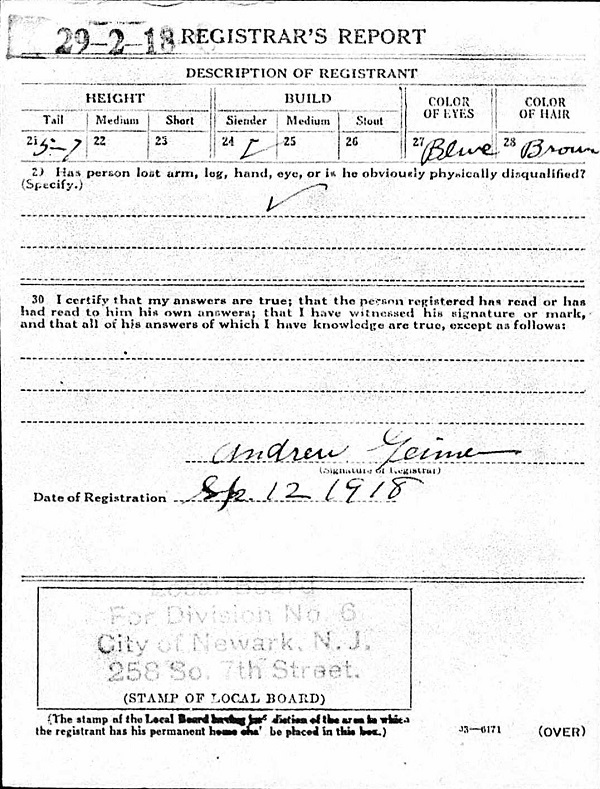 29-2-18 REGISTRAR'S REPORT
DESCRIPTION OF REGISTRANT
HEIGHT BUILD COLOR OF EYES COLOR OF HAIR
Tall Medium Short Slender Medium Stout
21 5-7 22 23 24 ✓ 25 26 27 Blue 28 Brown
29 Has person lost arm, leg, hand, eye, or is he obviously physically disqualified?
(Specify.)
✓
30 I certify that my answers are true; that the person registered has read or has
had read to him his own answers; that I have witnessed his signature or mark,
and that all of his answers of which I have knowledge are true, except as follows:
Andrew
(Signature of Registrar)
Date of Registration Sp. 12 1918
Local Board
For Division No. 6
City of Newark, N. J.
258 So. 7th Street.
(STAMP OF LOCAL BOARD)
(The stamp of the Local Board having jurisdiction of the area in which
the registrant has his permanent home shall be placed in this box.)
03—6171 (OVER)